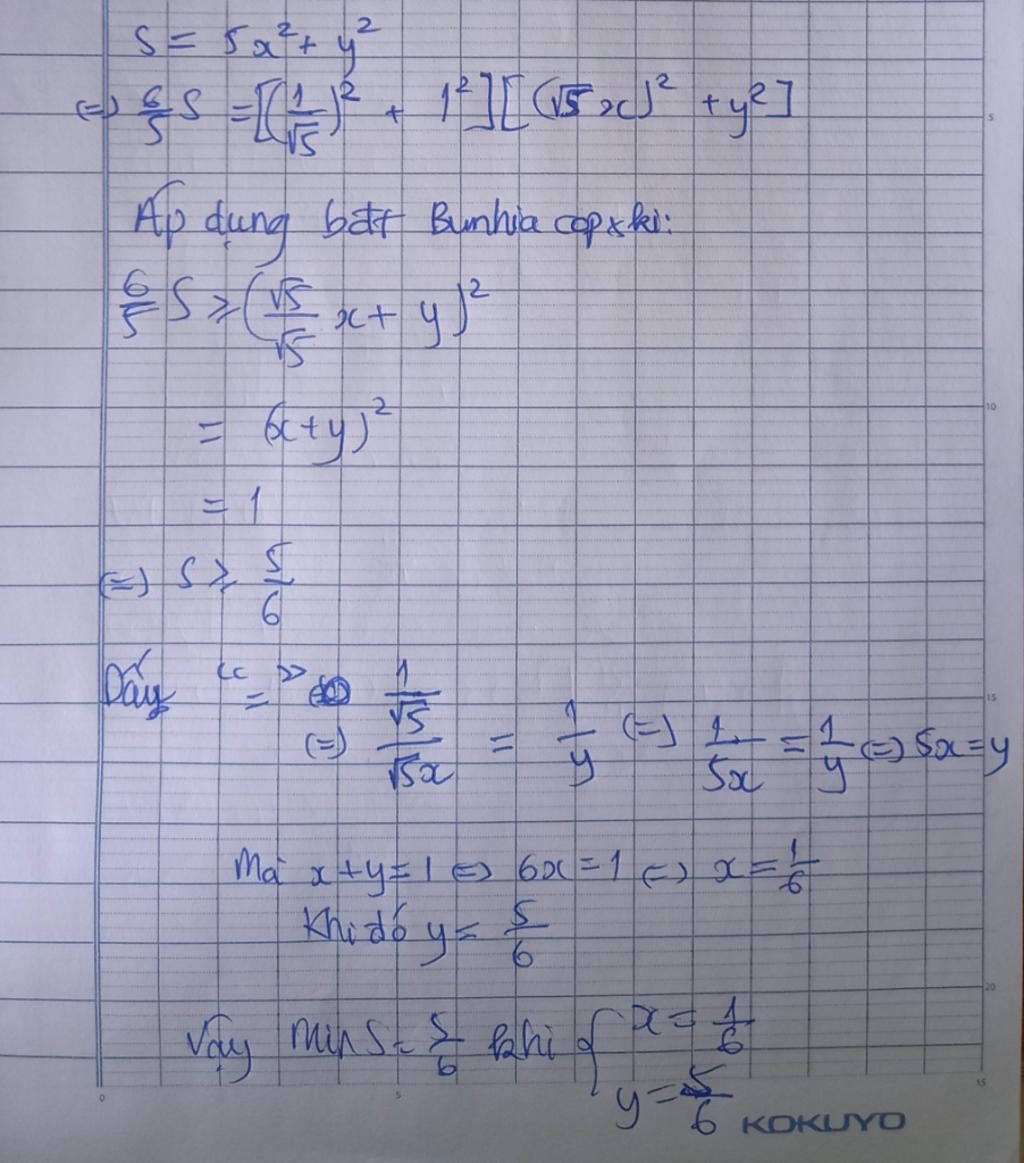 S = 5x² + y²
(=) 6/5 S = [(1/√5)² + 1²][(√5 x)² + y²]
Áp dụng bđt Bunhia copxki:
6/5 S ≥ (√5/√5 x + y)²
= (x+y)²
= 1
(=) S ≥ 5/6
Dấy "="
(=) (1/√5)/(√5x) = 1/y (=) 1/5x = 1/y (=) 5x = y
Mà x+y=1 (=) 6x=1 (=) x = 1/6
Khi đó y = 5/6
Vậy Min S = 5/6 khi { x = 1/6
y = 5/6
KOKUYO
5
10
15
20
0
5
15